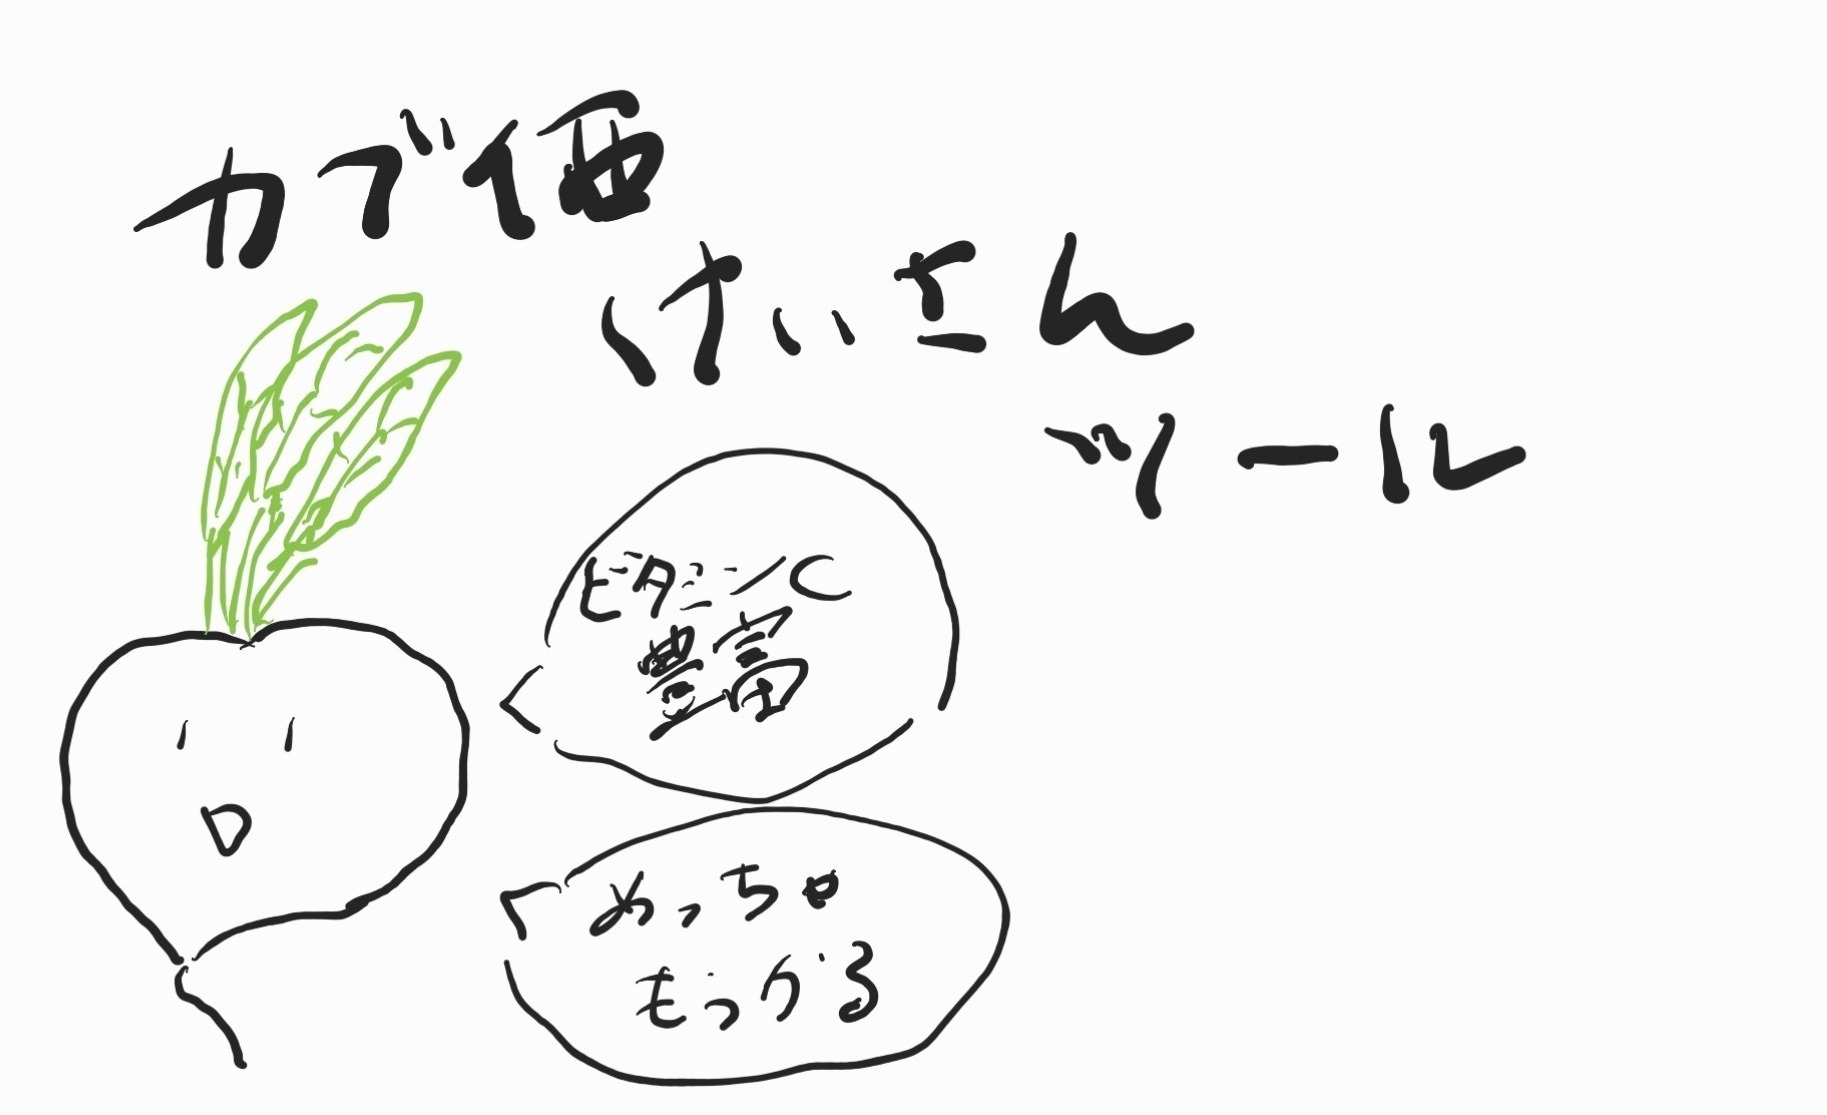 カブ価
けいさん
ツール
ビタミンC
豊富
めっちゃ
もうかる